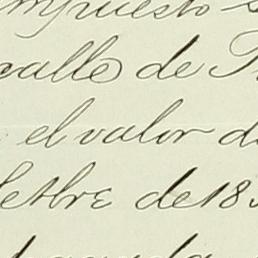 impuesto s
calle de T
el valor d
etbre de 18